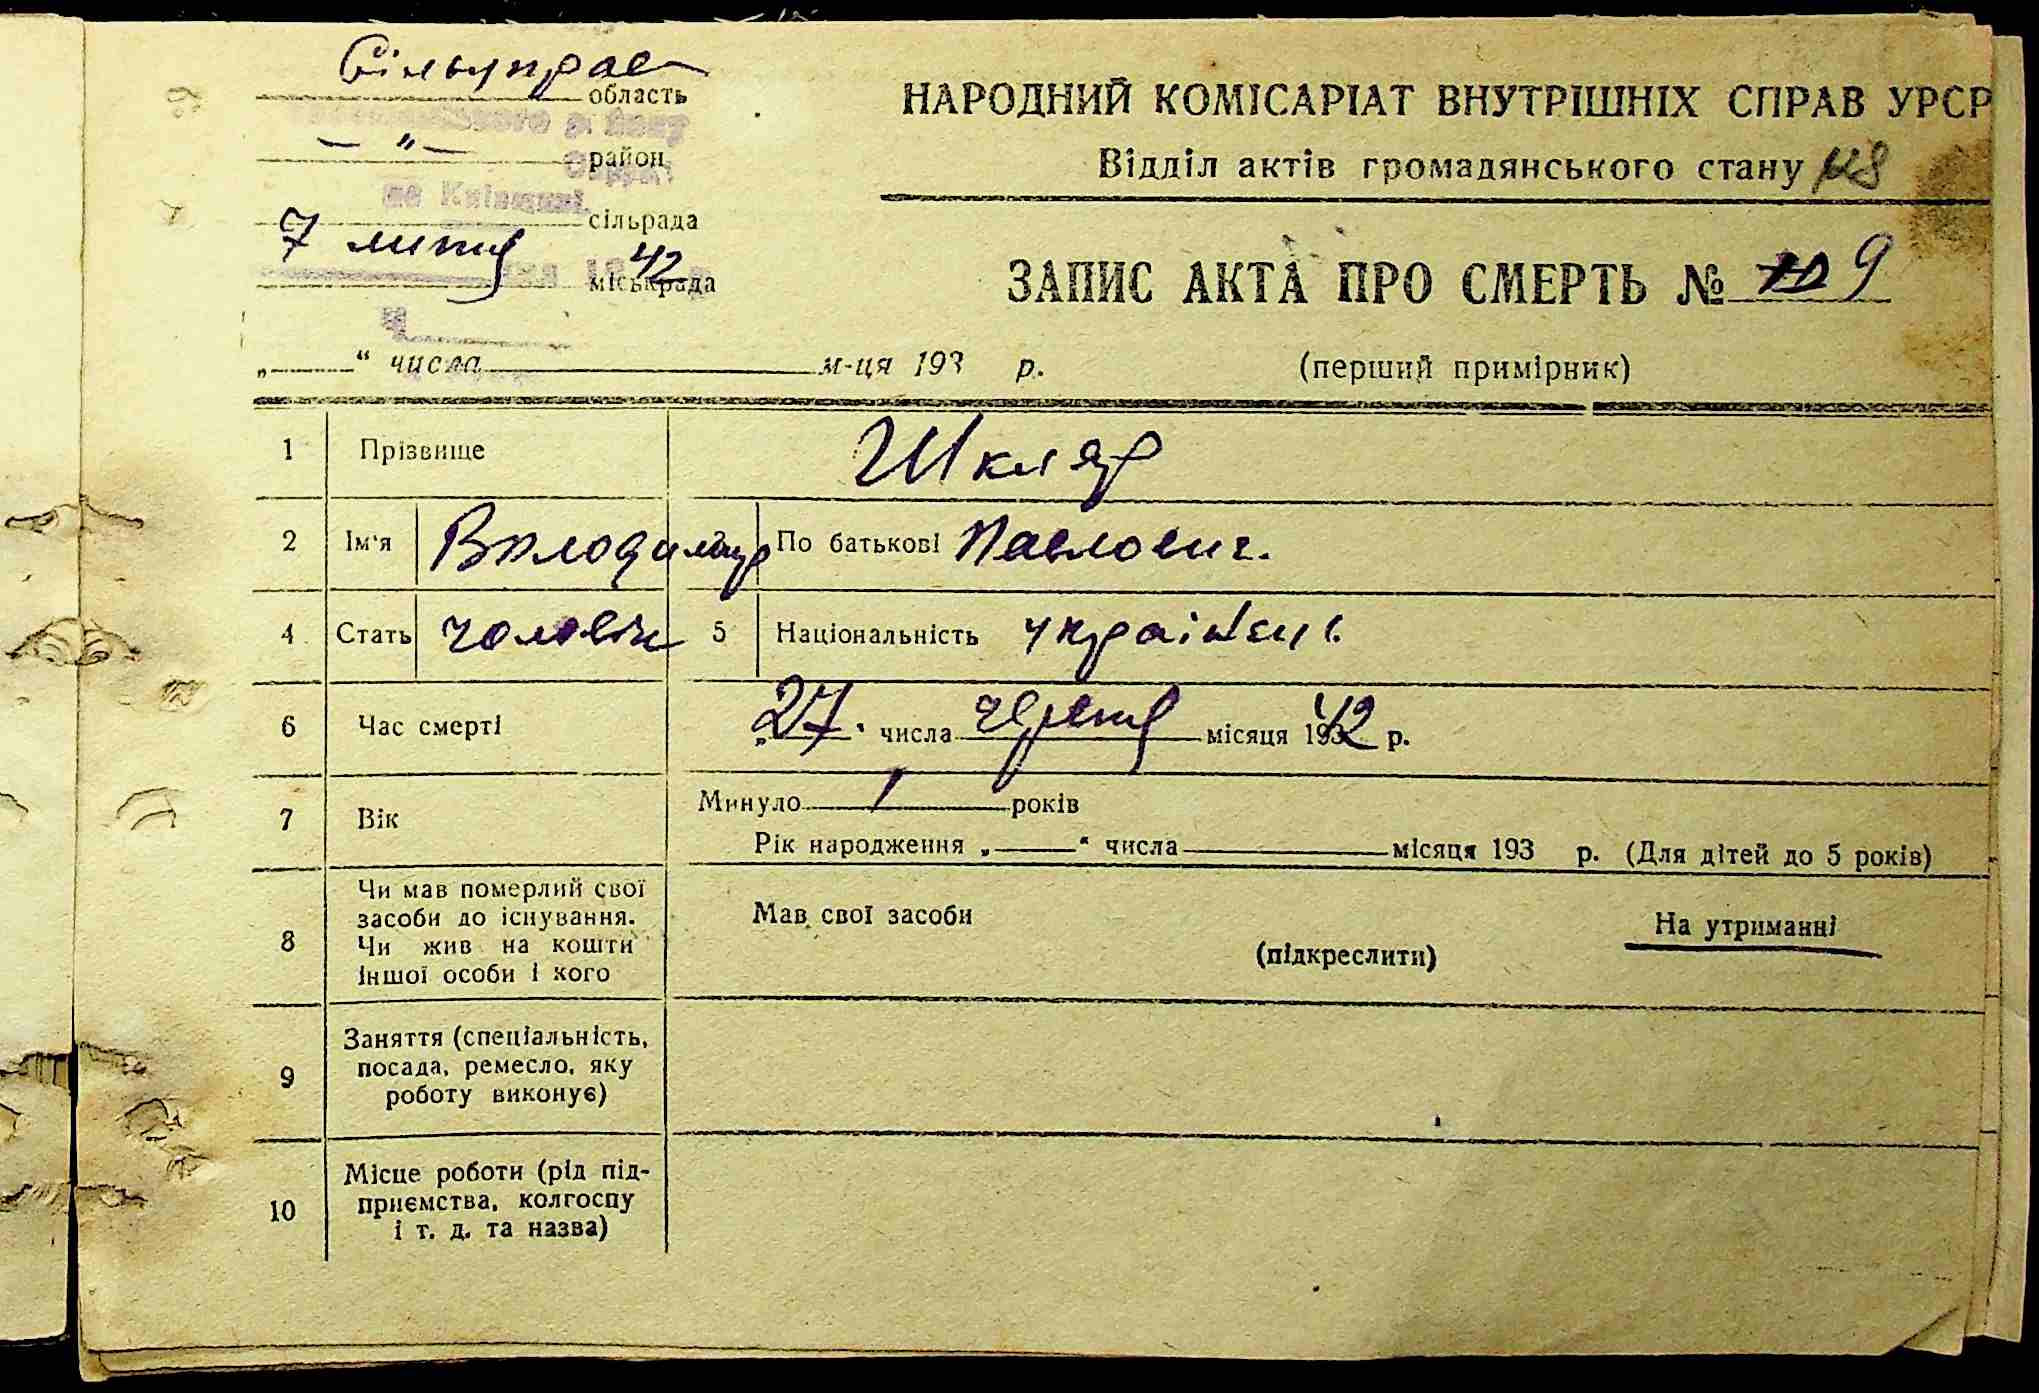 Сільуправ
область
— " —
район
на Київщині
сільрада
7 липня 42
міськрада
НАРОДНИЙ КОМІСАРІАТ ВНУТРІШНІХ СПРАВ УРСР
Відділ актів громадянського стану
ЗАПИС АКТА ПРО СМЕРТЬ № 9
„ “ числа м-ця 193 р.
(перший примірник)
1 Прізвище Шкляр
2 Ім'я Володимир По батькові Павлович.
4 Стать чоловік 5 Національність українец.
6 Час смерті „27“ числа червня місяця 1942 р.
7 Вік Минуло 1 років
Рік народження „ “ числа місяця 193 р. (Для дітей до 5 років)
8 Чи мав померлий свої
засоби до існування.
Чи жив на кошти
іншої особи і кого
Мав свої засоби
(підкреслити)
На утриманні
9 Заняття (спеціальність,
посада, ремесло, яку
роботу виконує)
10 Місце роботи (рід під-
приємства, колгоспу
і т. д. та назва)